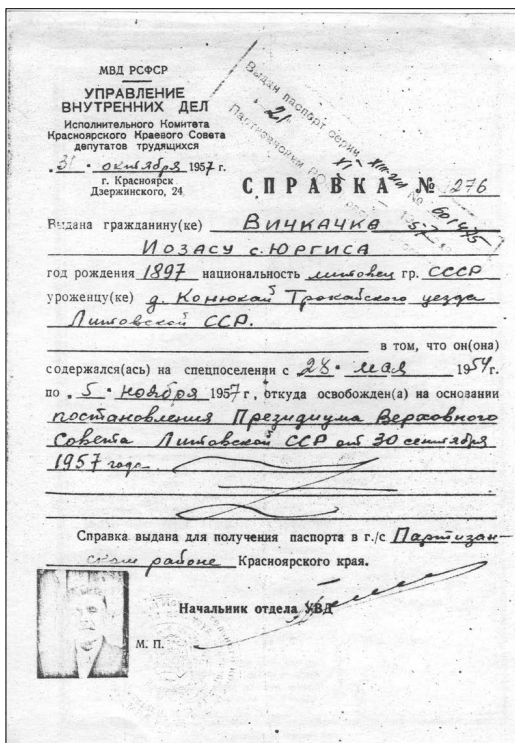 МВД РСФСР
УПРАВЛЕНИЕ
ВНУТРЕННИХ ДЕЛ
Исполнительного Комитета
Красноярского Краевого Совета
депутатов трудящихся
„31“ октября 1957 г.
г. Красноярск
Дзержинского, 24
Выдан паспорт серии
СПРАВКА № 276
Выдана гражданину(ке) ВИЧКАЧКА
ИОЗАСУ с. ЮРГИСА
год рождения 1897 национальность литовец гр. СССР
уроженцу(ке) д. Конюкай Тракайского уезда
Литовской ССР.
в том, что он(она)
содержался(ась) на спецпоселении с 28 мая 1954 г.
по 5 ноября 1957 г, откуда освобожден(а) на основании
постановления Президиума Верховного
Совета Литовской ССР от 30 сентября
1957 года
Справка выдана для получения паспорта в г./с Партизан-
ском районе Красноярского края.
Начальник отдела УВД
М. П.